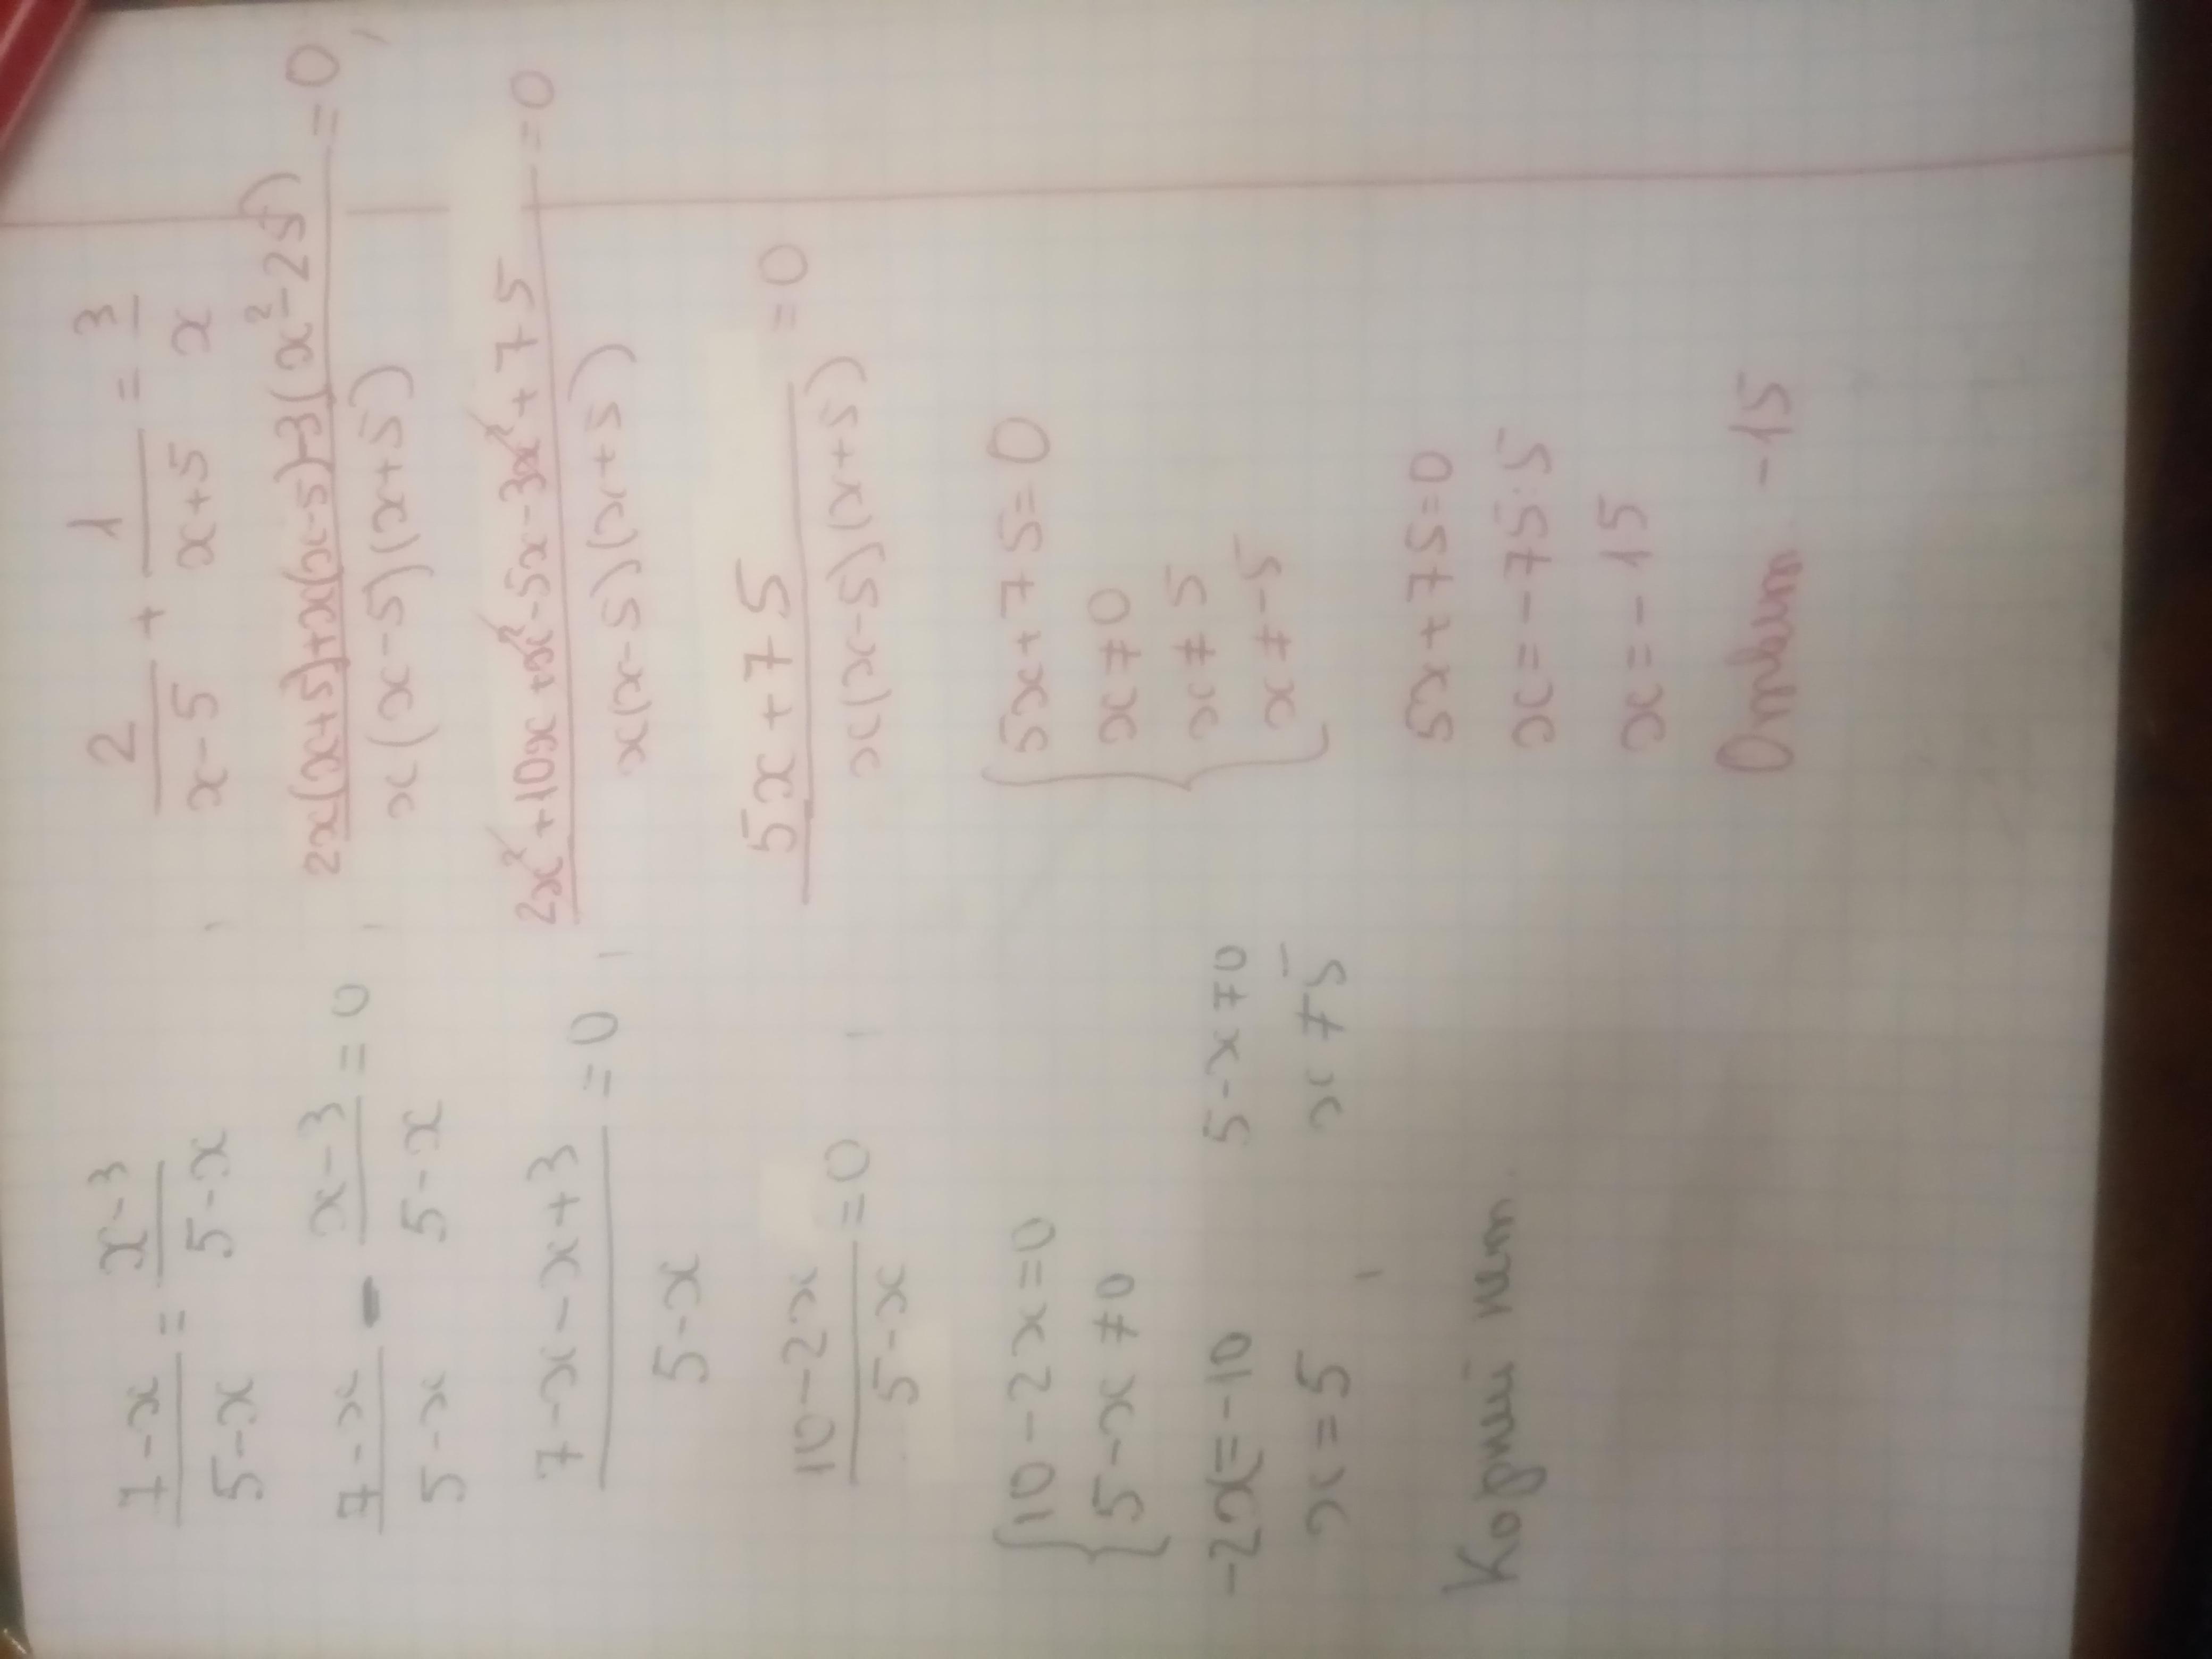 7-x/5-x = x-3/5-x
7-x/5-x - x-3/5-x = 0
7-x-x+3/5-x = 0
10-2x/5-x = 0
{10-2x=0
{5-x≠0
-2x=-10 5-x≠0
x=5 x≠5
Корней нет
2/x-5 + 1/x+5 = 3/x
2x(x+5)+x(x-5)-3(x²-25)/x(x-5)(x+5) = 0
2x²+10x+x²-5x-3x²+75/x(x-5)(x+5) = 0
5x+75/x(x-5)(x+5) = 0
{5x+75=0
x≠0
x≠5
x≠-5
5x+75=0
x=-75:5
x=-15
Ответ -15